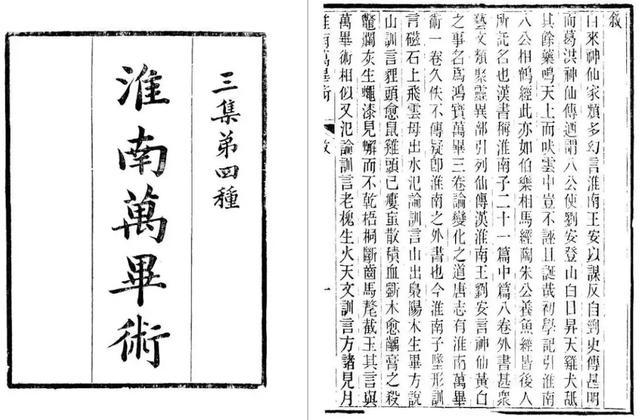 三集第四種
淮南萬畢術
敘
自來神仙家類多幻言淮南王安以謀反自剄史傳甚明
而葛洪神仙傳迺謂八公使劉安登山白日昇天雞犬䑛
其餘藥鳴天上而吠雲中豈不誣且誕哉初學記引淮南
八公相鶴經此亦如伯樂相馬經陶朱公養魚經皆後人
所託名也漢書稱淮南子二十一篇中篇八卷外書甚衆
藝文類聚靈異部引列仙傳漢淮南王劉安言神仙黃白
之事名爲鴻寶萬畢三卷論變化之道唐志有淮南萬畢
術一卷久佚不傳疑即淮南之外書也今淮南子墬形訓
言磁石上飛雲母出水氾論訓言山出梟陽木生畢方說
山訓言貍頭愈鼠雞頭已瘻蝱散積血斲木愈齲膏之殺
鼈爛灰生蠅漆見蠏而不乾梧桐斷馬氂截玉其言與
萬畢術相似又氾論訓言老槐生火天文訓言方諸見月
淮南萬畢術 敘 一